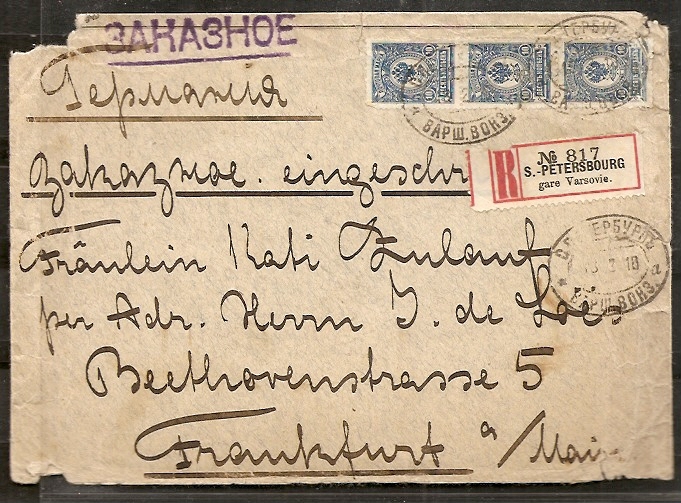 ЗАКАЗНОЕ
Германия
Заказное. eingeschr
№ 817
R S.-PETERSBOURG
gare Varsovie.
ВАРШ. ВОКЗ.
С.ПЕТЕРБУРГЪ
ВАРШ. ВОКЗ.
Fräulein Kati Zulauf
per Adr. Herrn J. de Loe
Beethovenstrasse 5
Frankfurt a/Main